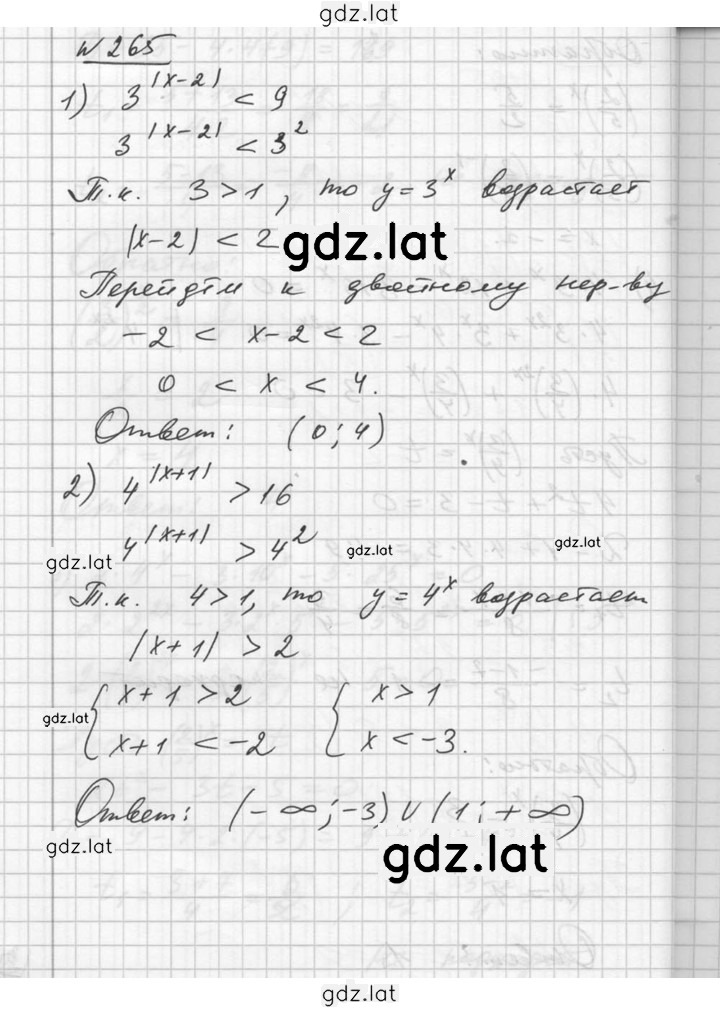 gdz.lat
N 265
1) 3^|x-2| < 9
3^|x-2| < 3^2
Т.к. 3 > 1, то y = 3^x возрастает
|x-2| < 2
gdz.lat
Перейдём к двойному нер-ву
-2 < x-2 < 2
0 < x < 4.
Ответ: (0; 4)
2) 4^|x+1| > 16
4^|x+1| > 4^2
gdz.lat gdz.lat gdz.lat
Т.к. 4 > 1, то y = 4^x возрастает
|x+1| > 2
{ x+1 > 2 { x > 1
gdz.lat
x+1 < -2 x < -3.
Ответ: (-∞; -3) ∪ (1; +∞)
gdz.lat
gdz.lat
gdz.lat